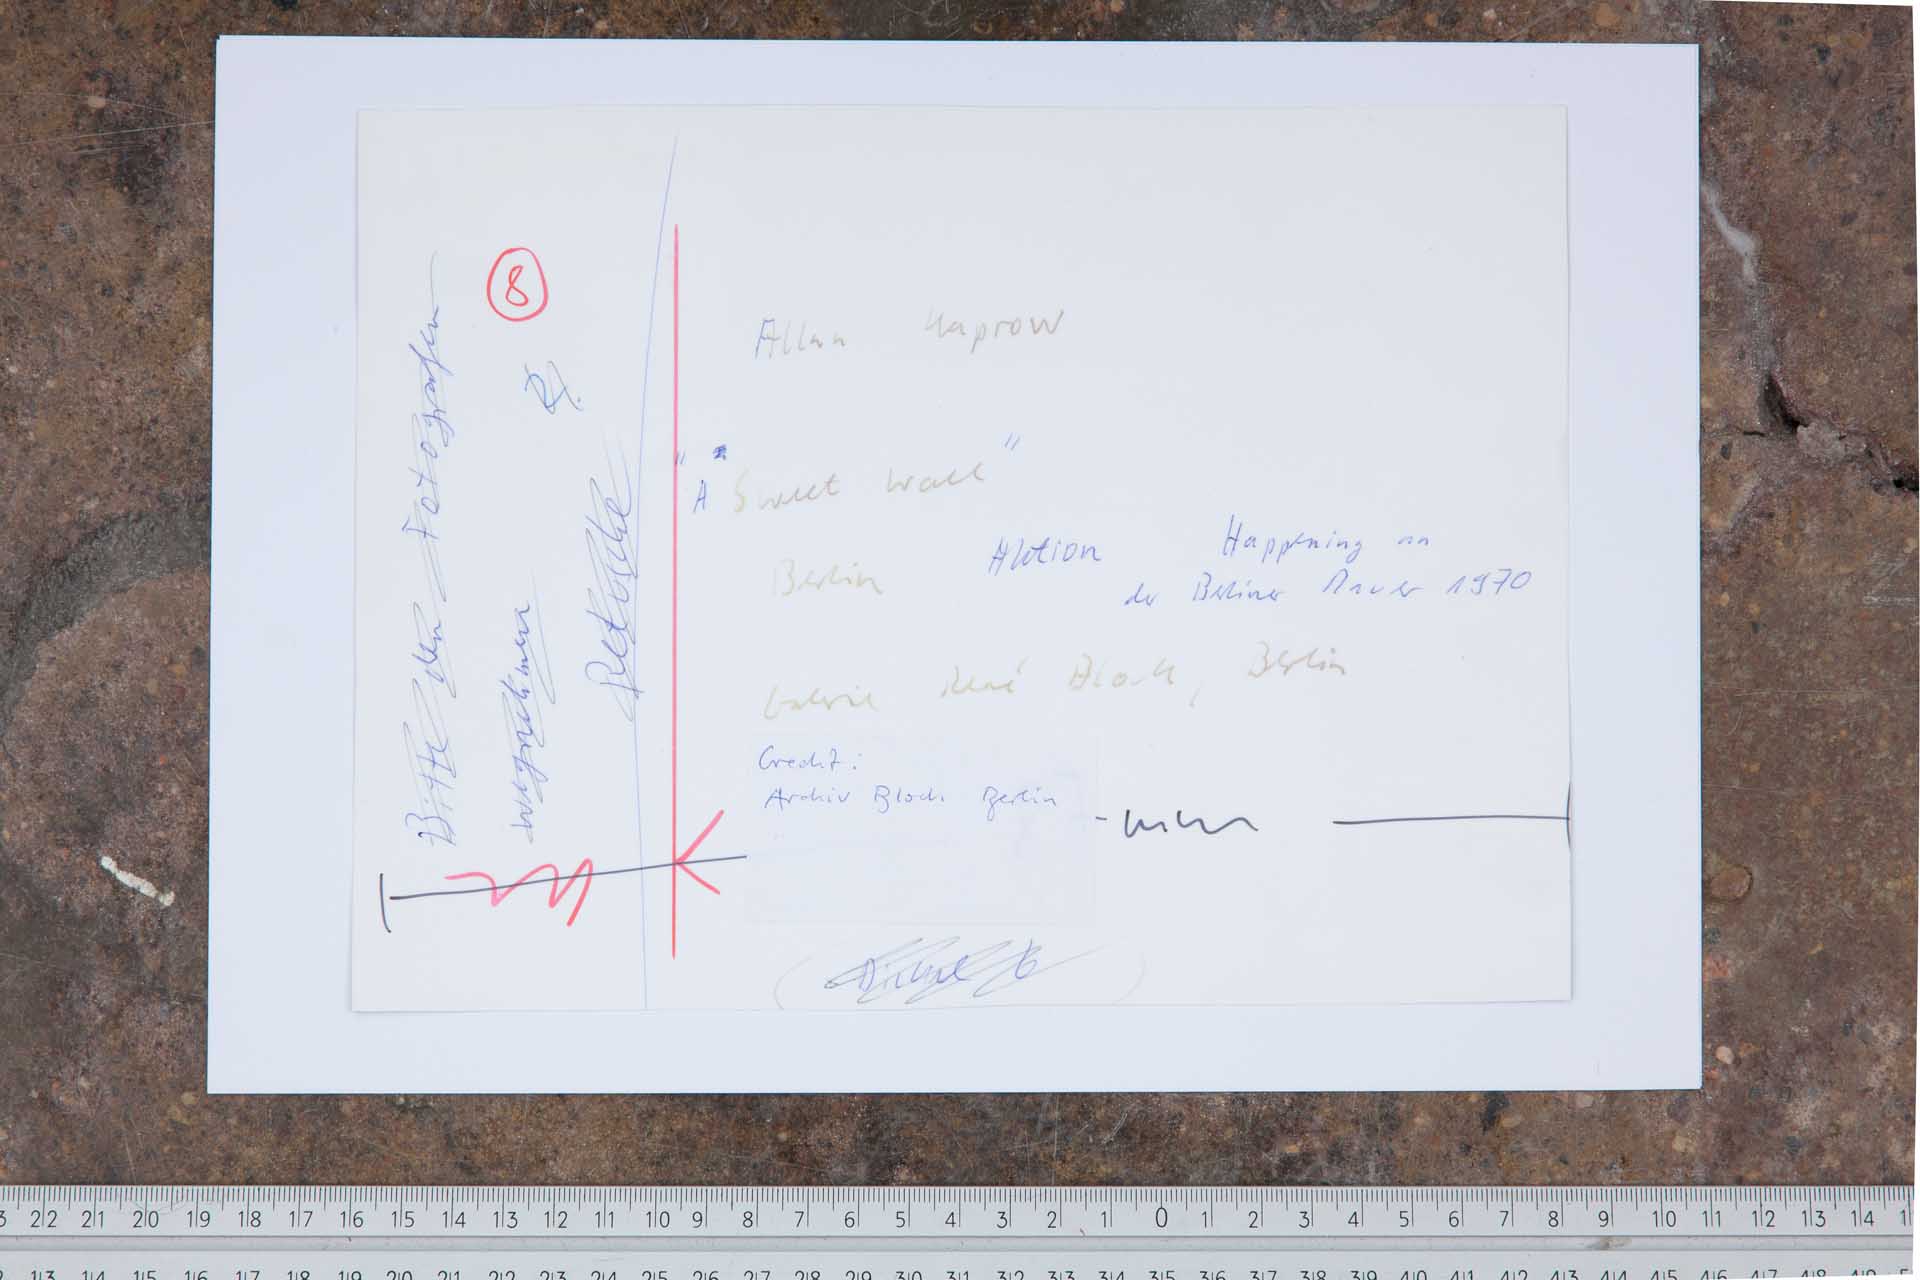 Bitte den Fotografen
wegnehmen
Retusche
8
Allan Kaprow
"A Sweet Wall"
Berlin Aktion Happening an
der Berliner Mauer 1970
Galerie René Block, Berlin
Credit:
Archiv Block Berlin
3 22 21 20 19 18 17 16 15 14 13 12 11 10 9 8 7 6 5 4 3 2 1 0 1 2 3 4 5 6 7 8 9 10 11 12 13 14
13 14 15 16 17 18 19 20 21 22 23 24 25 26 27 28 29 30 31 32 33 34 35 36 37 38 39 40 41 42 43 44 45 46 47 48 49